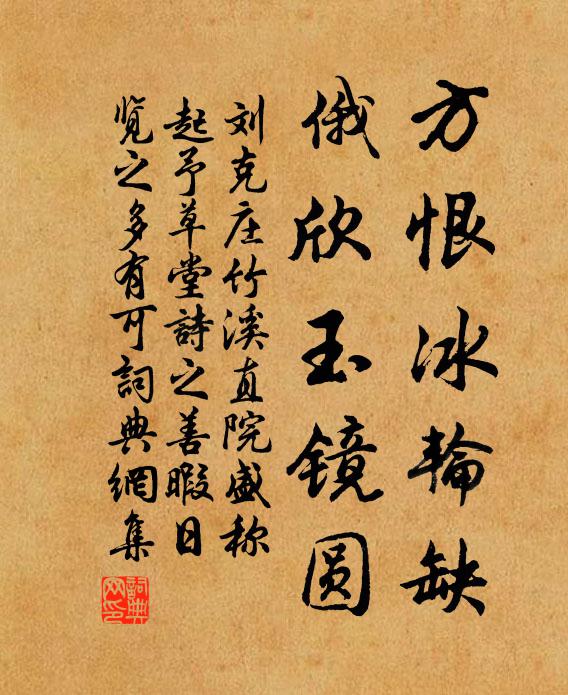 方恨冰輪缺
俄欣玉镜圆
刘克庄竹溪直院盛称
起予草堂詩之善暇日
览之多有可詞典網集
詞典網印